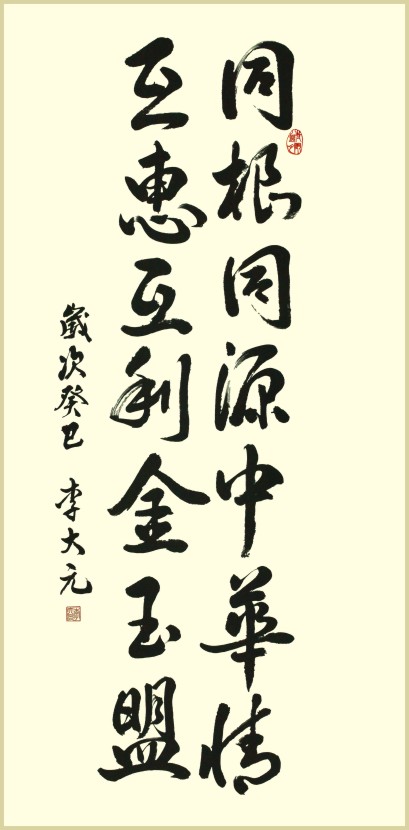 同根同源中華情
互惠互利金玉盟
歲次癸巳 李大元